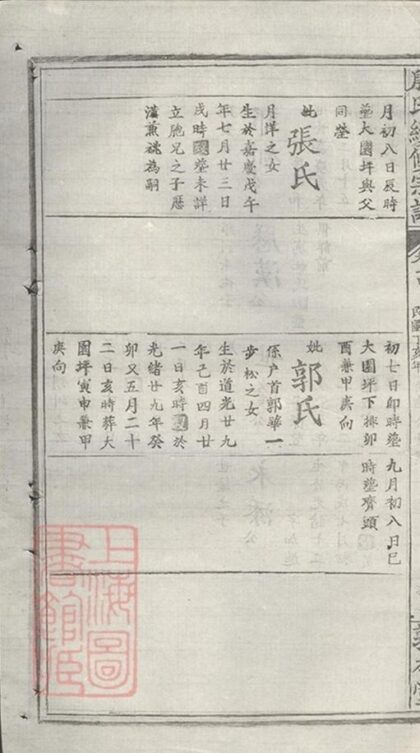 月初八日辰時
塟大園坪與父
同塋
妣張氏
月洋之女
生於嘉慶戊午
年七月廿三日
戌時 塟未詳
立胞兄之子應
漢兼祧為嗣
初七日卯時塟
大園坪下掷卯
酉兼甲庚向
妣郭氏
係戶首郭華一
步松之女
生於道光廿九
年己酉四月廿
一日亥時 於
光緒廿九年癸
卯又五月二十
二日亥時葬大
園坪寅申兼甲
庚向
九月初八日巳
時塟齊頭
上海圖
書館